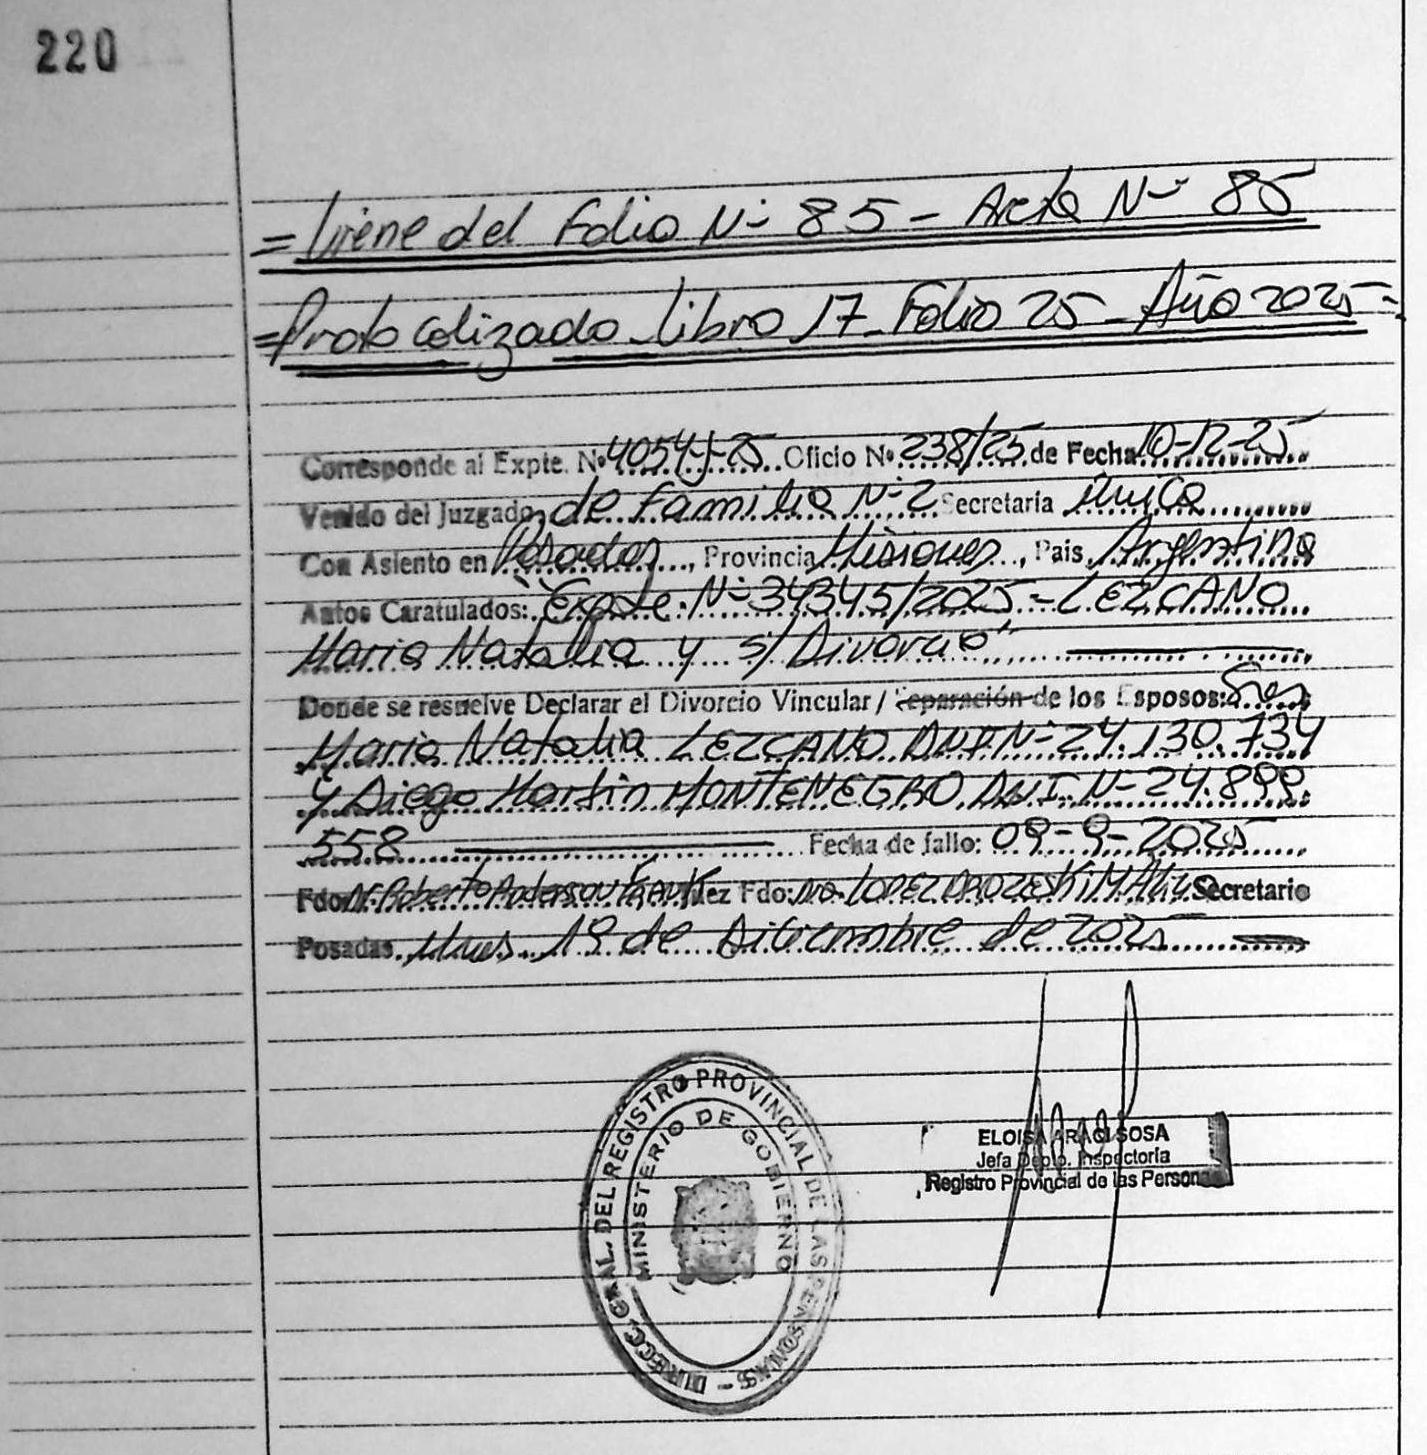 220
= Viene del Folio Nº 85 - Acta Nº 85
= Protocolizado Libro 17 - Folio 25 - Año 2025 =
Corresponde al Expte. Nº 4054-J-25 Oficio Nº 238/25 de Fecha 10-12-25
Venido del Juzgado de Familia Nº 2 Secretaria única
Con Asiento en Posadas, Provincia Misiones, Pais Argentina
Autos Caratulados: "Expte. Nº 34345/2025 - LEZCANO
Maria Natalia y s/ Divorcio"
Donde se resuelve Declarar el Divorcio Vincular / Separación de los Esposos: Sres
Maria Natalia LEZCANO DNI. Nº 24.130.734
y Diego Martin MONTENEGRO D.N.I. Nº 24.899.
558 Fecha de fallo: 09-9-2025
Fdo: Roberto Juez Fdo: LOPEZ Secretario
Posadas, Mnes. 19 de Diciembre de 2025
ELOISA ARACI SOSA
Jefa Depto. Inspectoria
Registro Provincial de las Personas
DIRECC. GRAL. DEL REGISTRO PROVINCIAL DE LAS PERSONAS -
MINISTERIO DE GOBIERNO